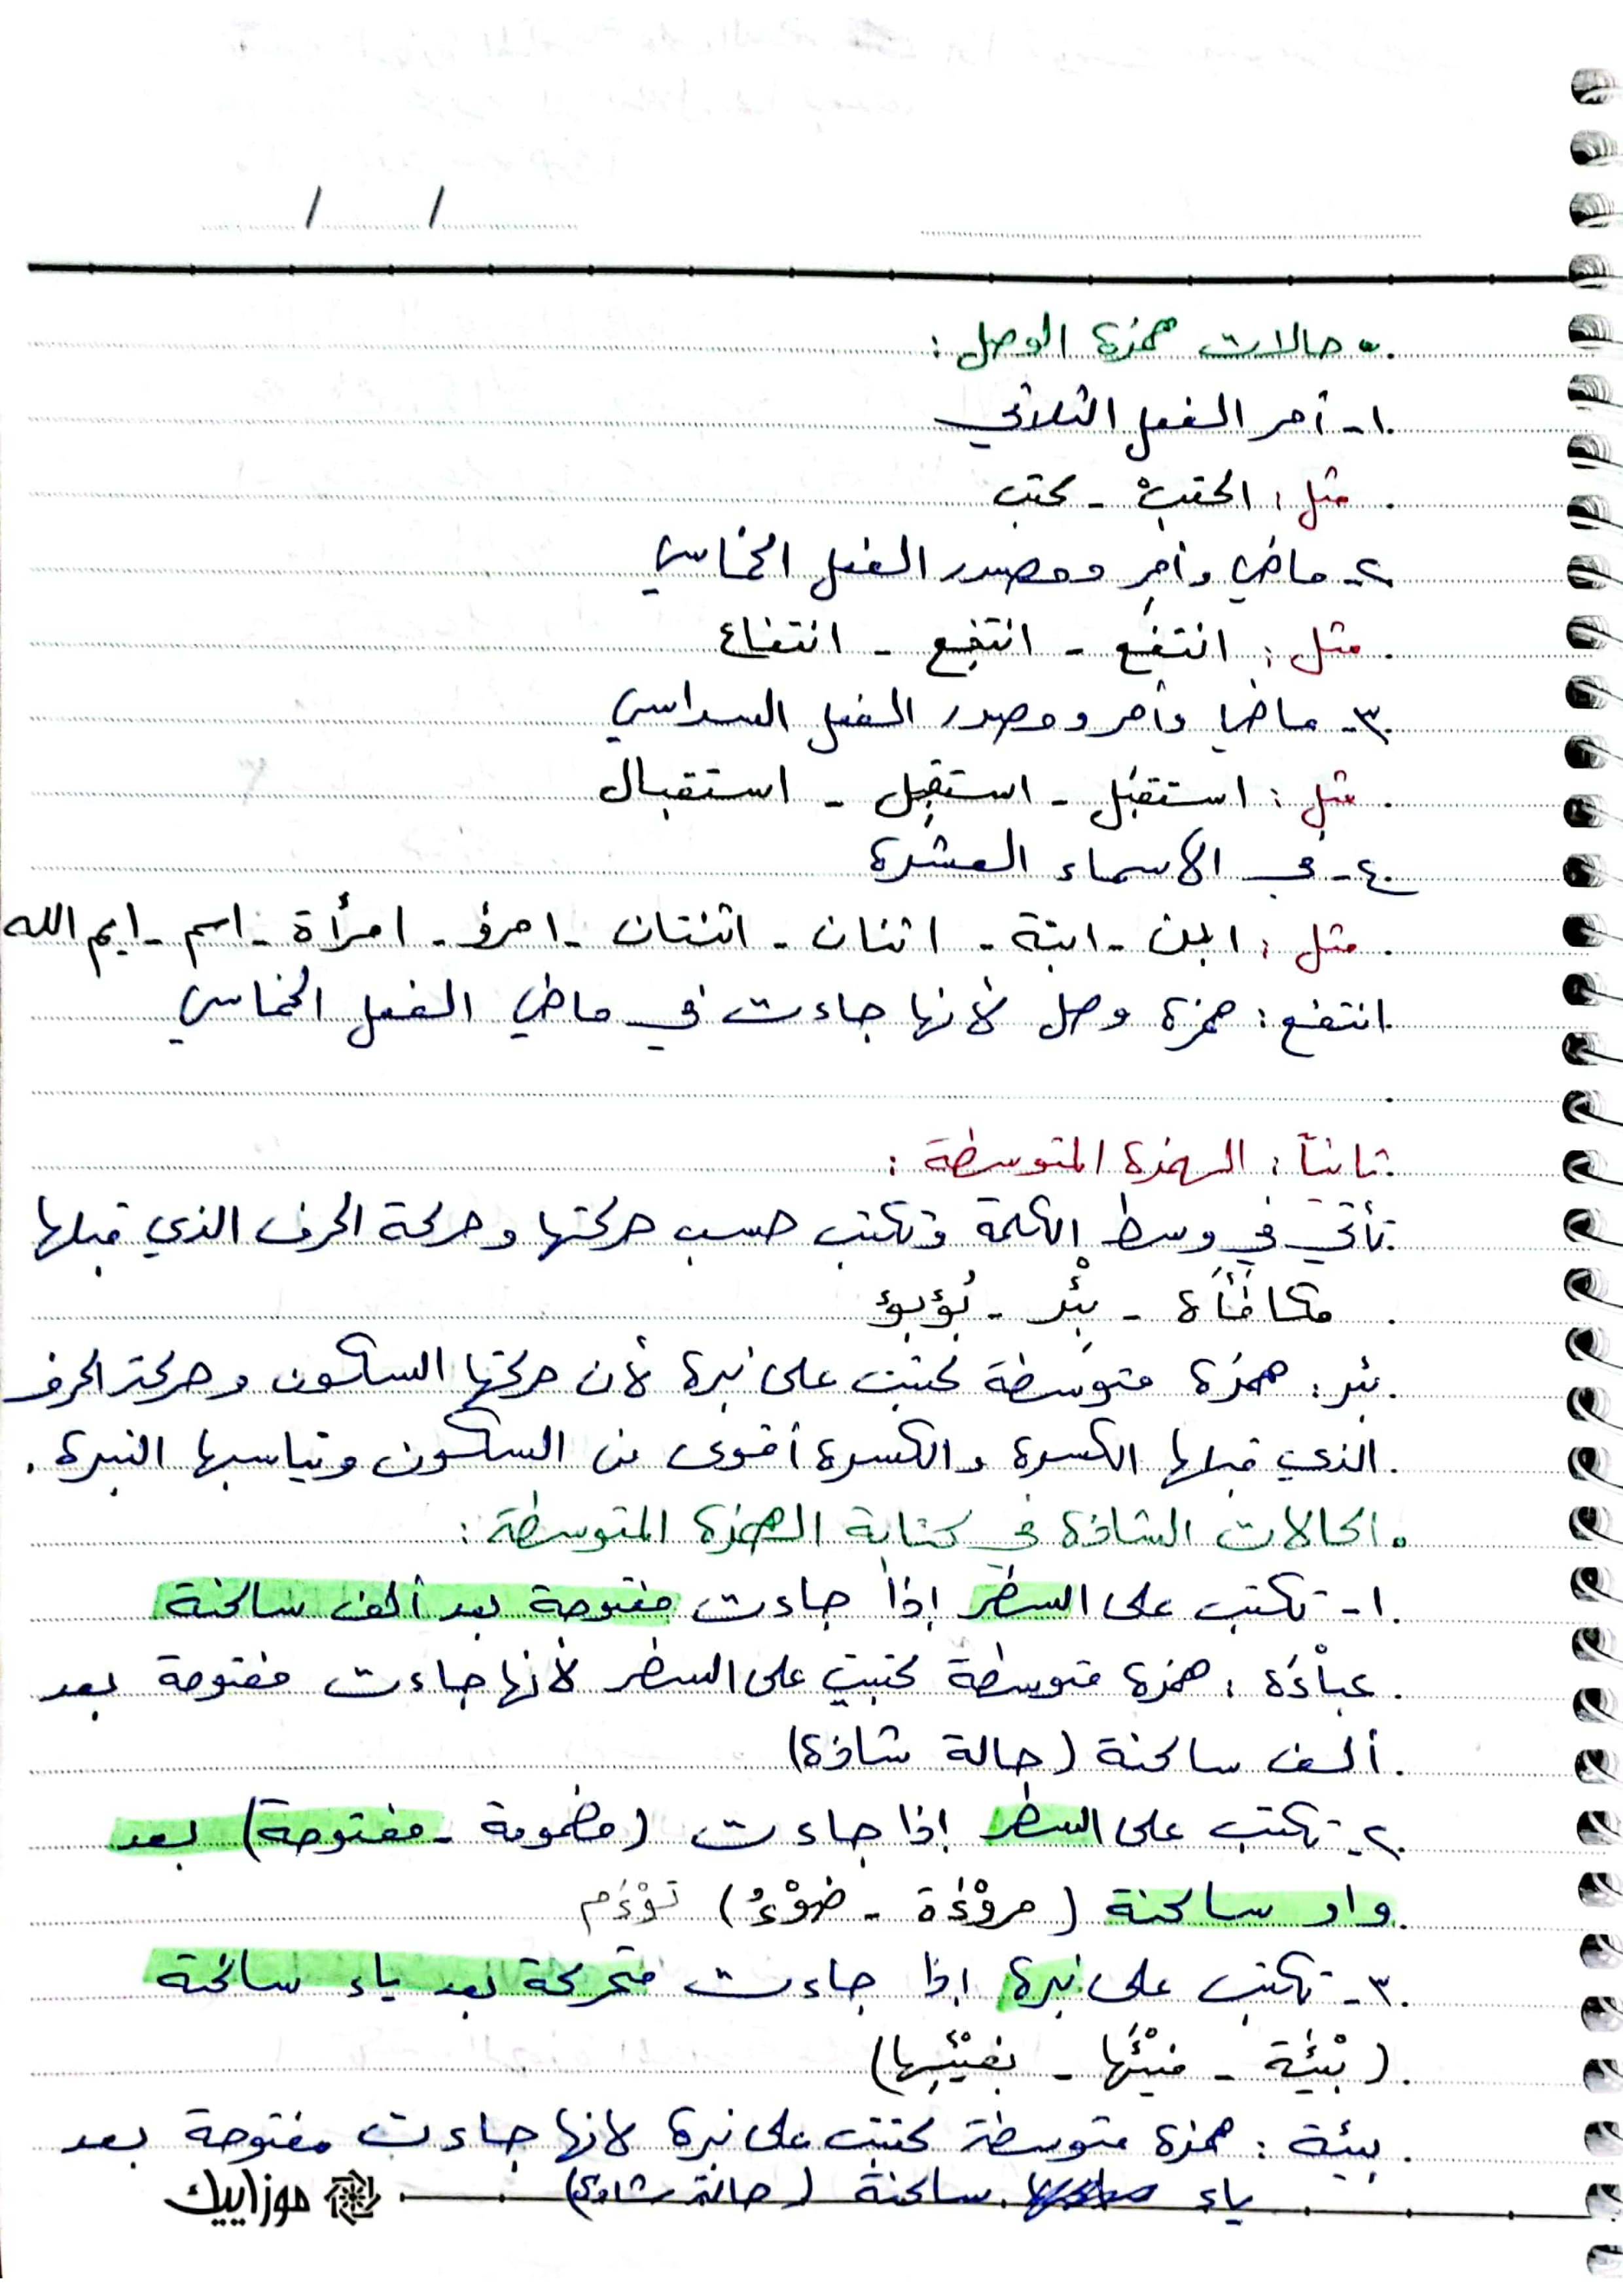 / /
• حالات همزة الوصل :
١- أمر الفعل الثلاثي
مثل : اكتبْ - كتب
٢- ماضي وأمر ومصدر الفعل الخماسي
مثل : انتفَع - انتفِع - انتفاع
٣- ماضي وأمر ومصدر الفعل السداسي
مثل : استقبَل - استقبِل - استقبال
٤- في الأسماء العشرة
مثل : ابن - ابنة - اثنان - اثنتان - امرؤ - امرأة - اسم - ايم الله
انتفع : همزة وصل لأنها جاءت في ماضي الفعل الخماسي
ثانياً : الهمزة المتوسطة :
تأتي في وسط الكلمة وتكتب حسب حركتها وحركة الحرف الذي قبلها
مكافَأَة - بِئْر - بُؤبؤ
بئر : همزة متوسطة كتبت على نبرة لأن حركتها السكون وحركة الحرف
الذي قبلها الكسرة والكسرة أقوى من السكون ويناسبها النبرة .
• الحالات الشاذة في كتابة الهمزة المتوسطة :
١- تكتب على السطر إذا جاءت مفتوحة بعد ألف ساكنة
عباْءَة : همزة متوسطة كتبت على السطر لأنها جاءت مفتوحة بعد
ألف ساكنة (حالة شاذة)
٢- تكتب على السطر إذا جاءت (مضمومة - مفتوحة) بعد
واو ساكنة (مروْءَة - ضوْءُ) توْءَم
٣- تكتب على نبرة إذا جاءت متحركة بعد ياء ساكنة
(بيْئَة - فيْئُها - بفيْئِها)
بيئة : همزة متوسطة كتبت على نبرة لانها جاءت مفتوحة بعد
ياء ساكنة (حالة شاذة)
موزاييك